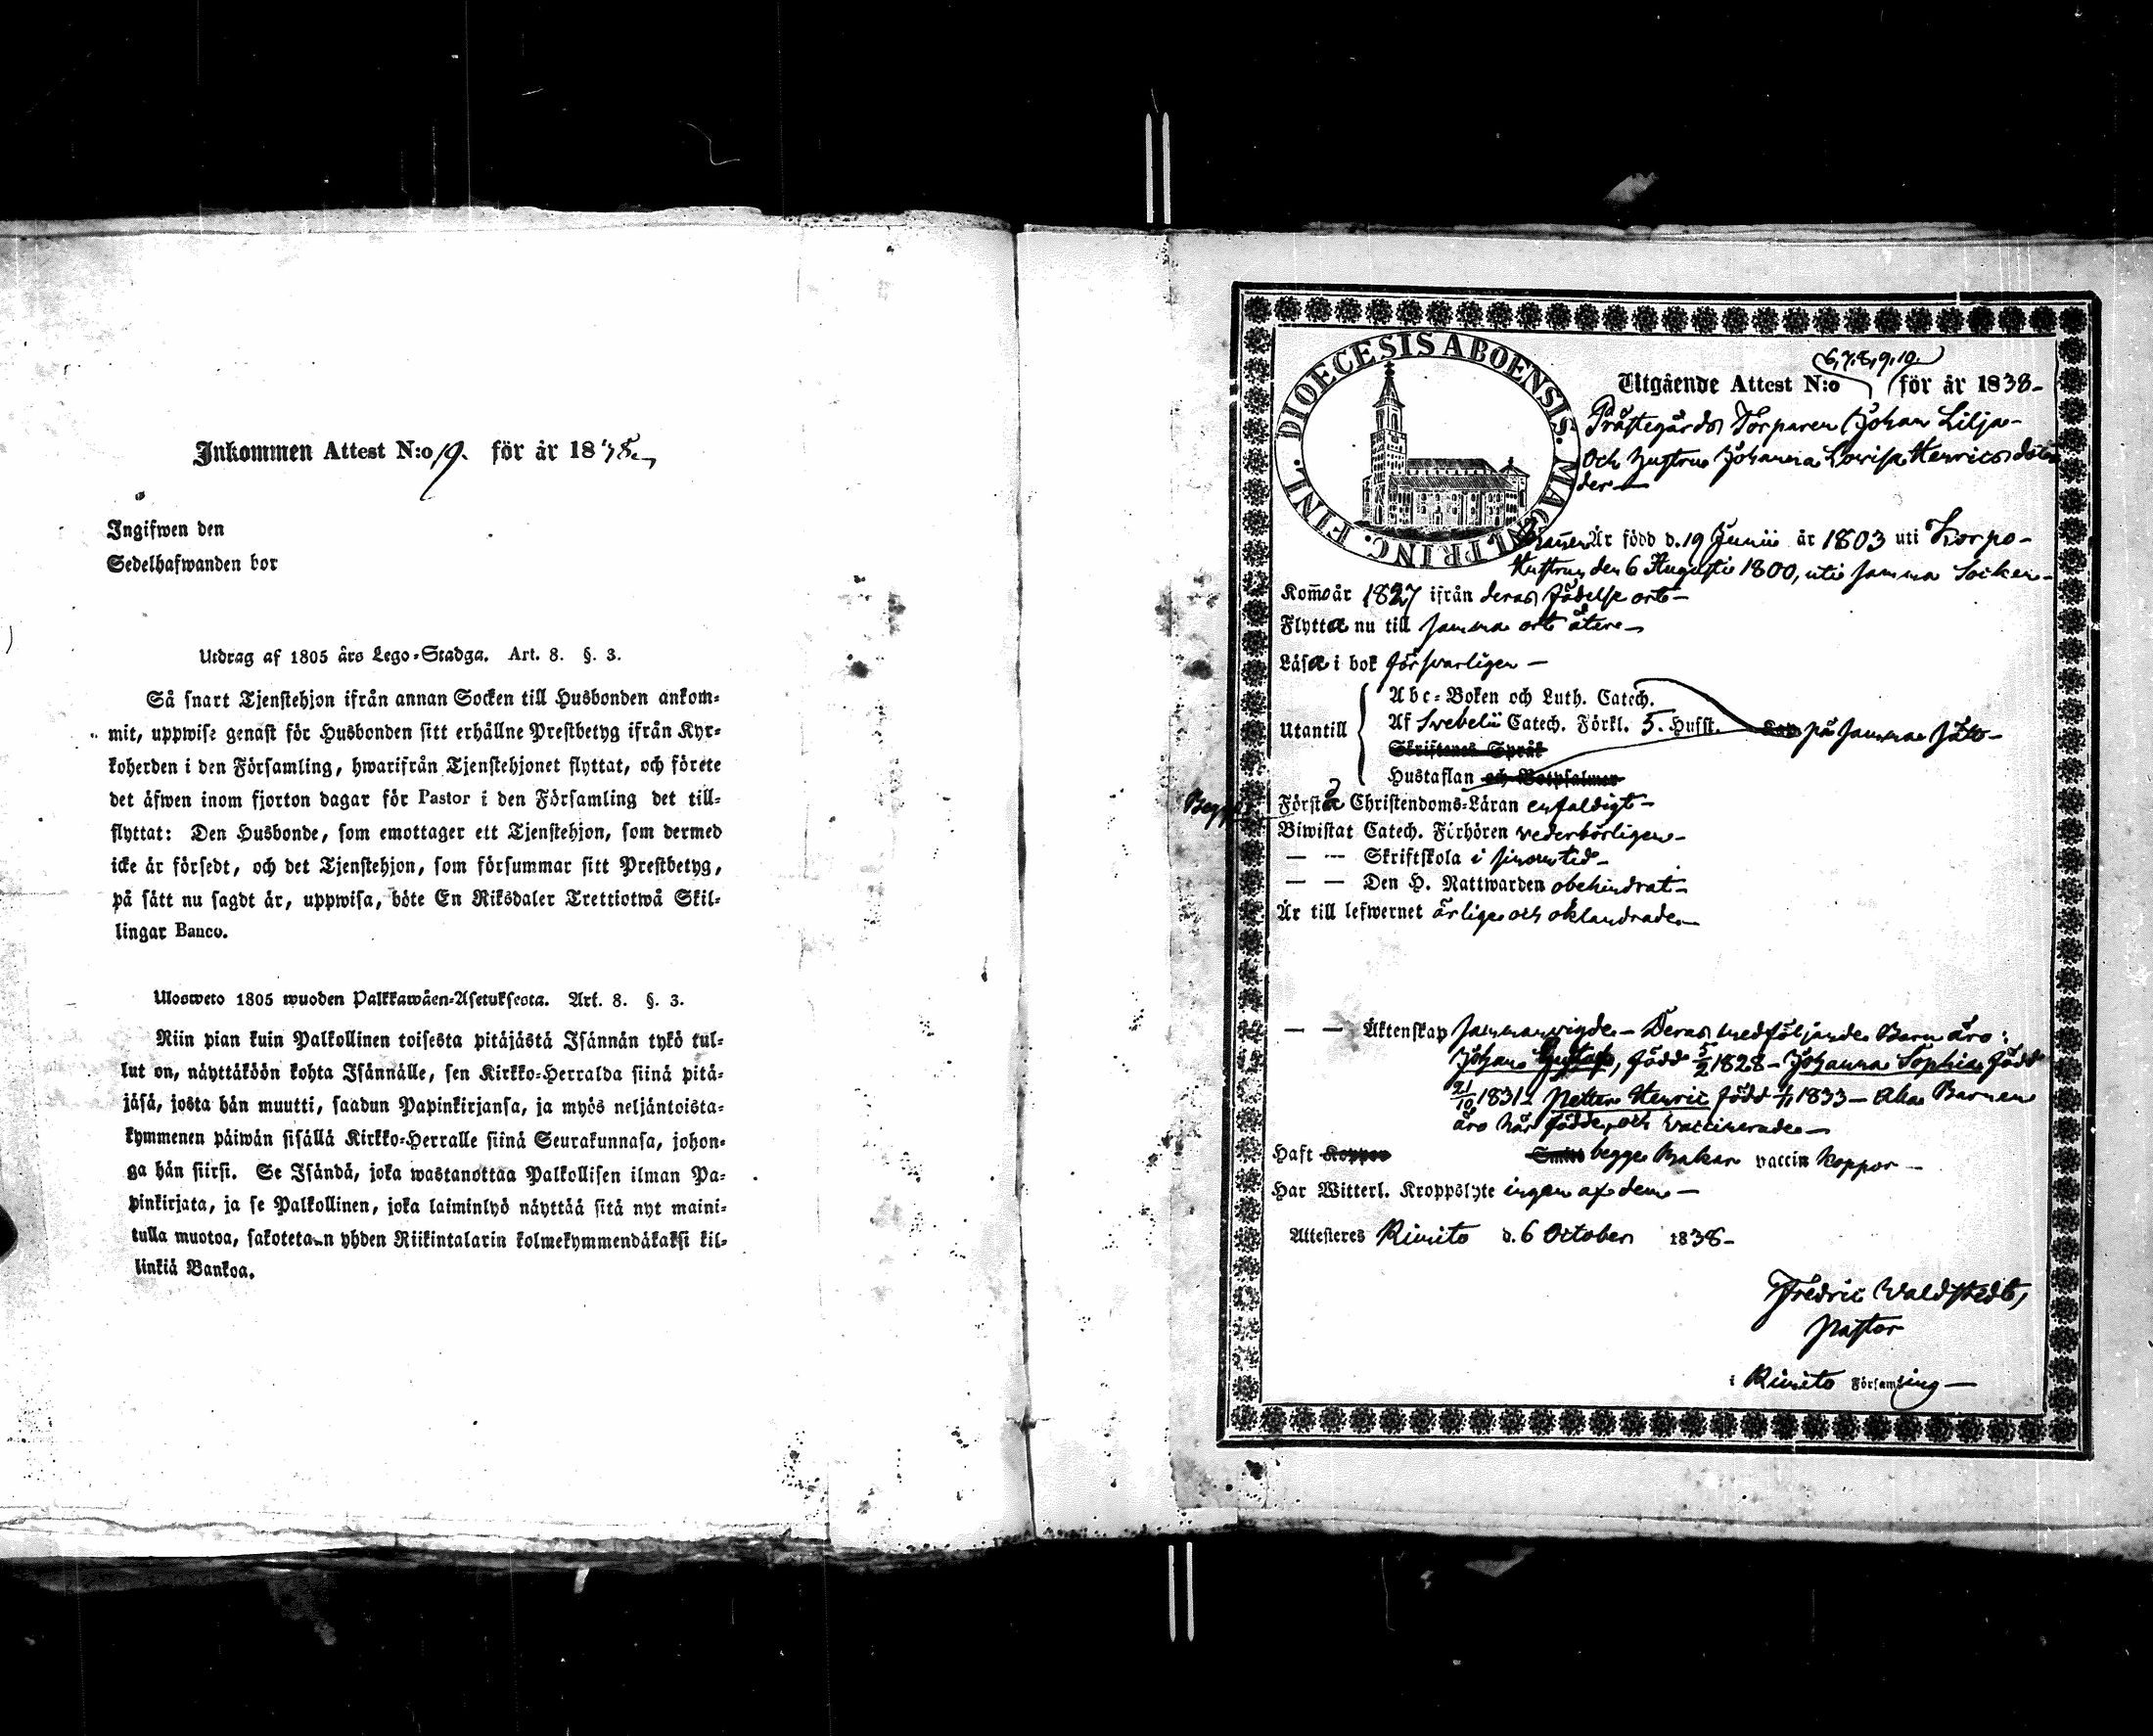 Inkommen Attest N:o 19. för år 1838.
Ingifwen den
Sedelhafwanden bor
Utdrag af 1805 års Lego-Stadga. Art. 8. §. 3.
Så snart Tjenstehjon ifrån annan Socken till Husbonden ankom-
mit, uppwise genast för Husbonden sitt erhållne Prestbetyg ifrån Kyr-
koherden i den Församling, hwarifrån Tjenstehjonet flyttat, och förete
det äfwen inom fjorton dagar för Pastor i den Församling det till-
flyttat: Den Husbonde, som emottager ett Tjenstehjon, som dermed
icke är försedt, och det Tjenstehjon, som försummar sitt Prestbetyg,
på sätt nu sagdt är, uppwisa, böte En Riksdaler Trettiotwå Skil-
lingar Banco.
Ulosweto 1805 wuoden Palkkawäen-Asetuksesta. Art. 8. §. 3.
Niin pian kuin Palkollinen toisesta pitäjästä Isännän tykö tul-
lut on, näyttäköön kohta Isännälle, sen Kirkko-Herralda siinä pitä-
jäsä, josta hän muutti, saadun Papinkirjansa, ja myös neljäntoista-
kymmenen päiwän sisällä Kirkko-Herralle siinä Seurakunnasa, johon-
ga hän siirsi. Se Isändä, joka wastanottaa Palkollisen ilman Pa-
pinkirjata, ja se Palkollinen, joka laiminlyö näyttää sitä nyt maini-
tulla muotoa, sakotetaan yhden Riikintalarin kolmekymmendäkaksi kil-
linkiä Bankoa.
DIOECESIS ABOENSIS. MAGNI PRINC. FINL.
6, 7, 8, 9, 10.
Utgående Attest N:o för år 1838-
Prästegårds Torparen Johan Lilja-
och hustru Johanna Lovisa Henrics dot-
ter-
Mannen Är född d. 19 Junii år 1803 uti Korpo-
Hustrun den 6 Augusti 1800, uti samma Socken-
Kom̅o år 1827 ifrån deras födelse ort-
Flytta nu till samma ort åter-
Läsa i bok försvarligen-
Abc-Boken och Luth. Catech.
Utantill Af Svebelii Catech. Förkl. 5. Hufst. på samma sätt-
Skriftenes Språk
Hustaflan och Botpsalmer
Begge Förstå Christendoms-Läran enfaldigt-
Biwistat Catech. Förhören vederbörligen-
— — Skriftskola i sinom tid-
— — Den H. Nattwarden obehindrat-
Är till lefwernet ärlige och oklandrade-
— — Äktenskap sammanvigde- Deras medföljande Barn äro:
Johan Gustaf, född 5/2 1828- Johanna Sophia född
21/10 1831- Petter Henric född 1833- Alla Barnen
äro här födde, och vaccinerade-
Haft Koppor begge Makar vaccin koppor-
Har Witterl. Kroppslyte ingen af dem-
Attesteres Rimito d. 6 October 1838-
Fredric Waldstedt,
Pastor
i Rimito Församling-